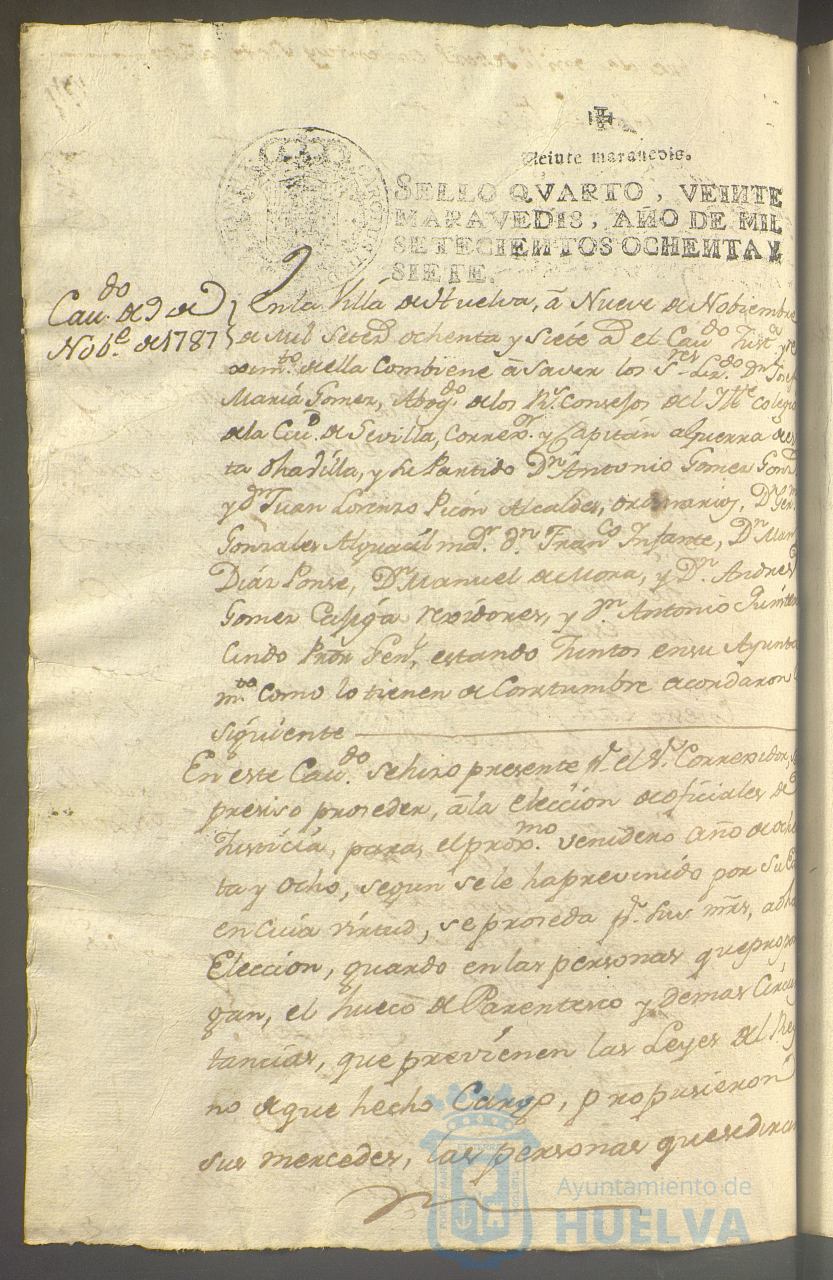 Veinte marauedis.
SELLO QVARTO, VEINTE
MARAVEDIS, AÑO DE MIL
SETECIENTOS OCHENTA Y
SIETE.
Cav.do de 9 de
Nob.e de 1787
En la Villa de Huelva, â Nueve de Nobiembre
de mil seted ochenta y siete ad el Cavdo Just.a y re
ximto. della Combiene â saver los Sres Lzdo. Dn Josef
Maria Gomez, Abogdo. de los Rs. Consejos del Iltte Colegio
de la Ciud. de Sevilla, Correxor. y Capitán a guerra de es
ta dha Villa, y su Partido Dn Antonio Gomez Gonz
y dn Juan Lorenzo Picón Alcaldes, ordinarios, Dn
Gonzales Alguacil mar. dn Franco Infante, Dn Man
Diáz Ponse, Dn Manuel de Mora, y Dn. Andres
Gomez rexidores, y Dn Antonio
cindo Pror Jenl, estando Juntos en su Ayunta
mto. Como lo tienen de Costumbre acordaron l
siguiente
En este Cavdo. se hizo presente pr. el Sr. Correxidor, s
presiso proseder, â la elección de oficiales de
Justicia, para, el proxmo. venidero año de oche
ta y ocho, segun se le ha prevenido por su Ex
en cuia virtud, se proseda pr. sus mrds, a dha
Elección, guardo en las personas que propon
gan, el hueco de Parentesco y demas Circuns
tancias, que previenen las Leyes del Rey
no de que hecho Cargo, propusieron
sus mercedes, las personas que se diran
Ayuntamiento de
HUELVA